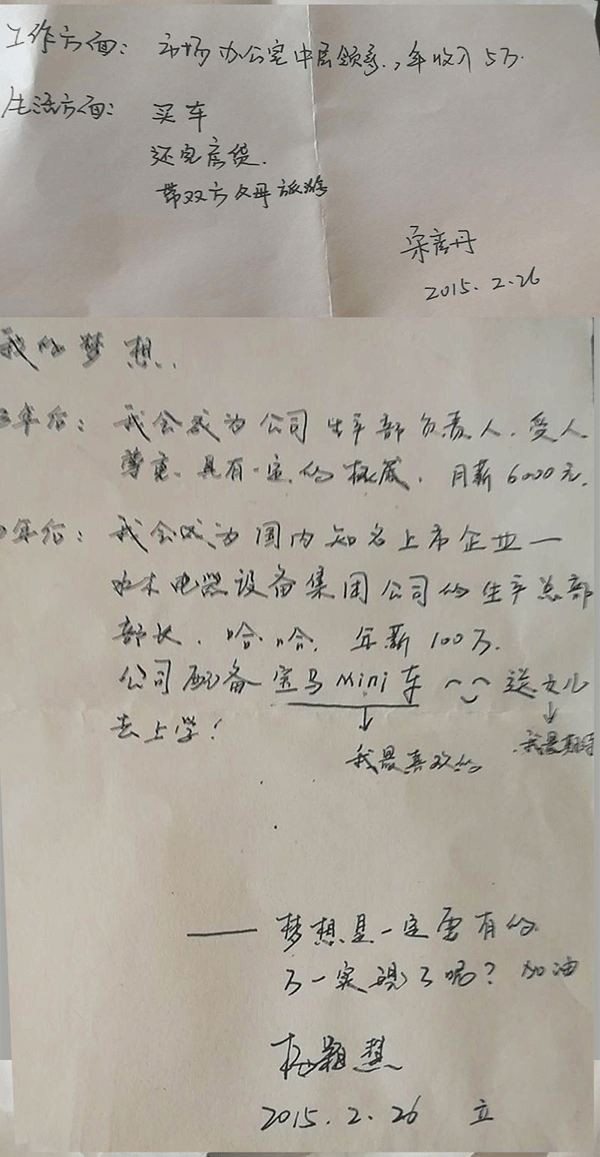 工作方面: 市场办公室中层领导, 年收入5万.
生活方面: 买车
还完房贷.
带双方父母旅游
2015.2.26
我的梦想.
年后: 我会成为公司生产部负责人. 受人
尊重. 具有一定的权威. 月薪6000元.
年后: 我会成为国内知名上市企业一
电器设备集团公司的生产总部
部长. 哈哈. 年薪100万.
公司配备宝马mini车 送女儿
去上学!
我最喜欢的
我最期待
—— 梦想是一定要有的
万一实现了呢? 加油
杨颖慧
2015.2.26 立